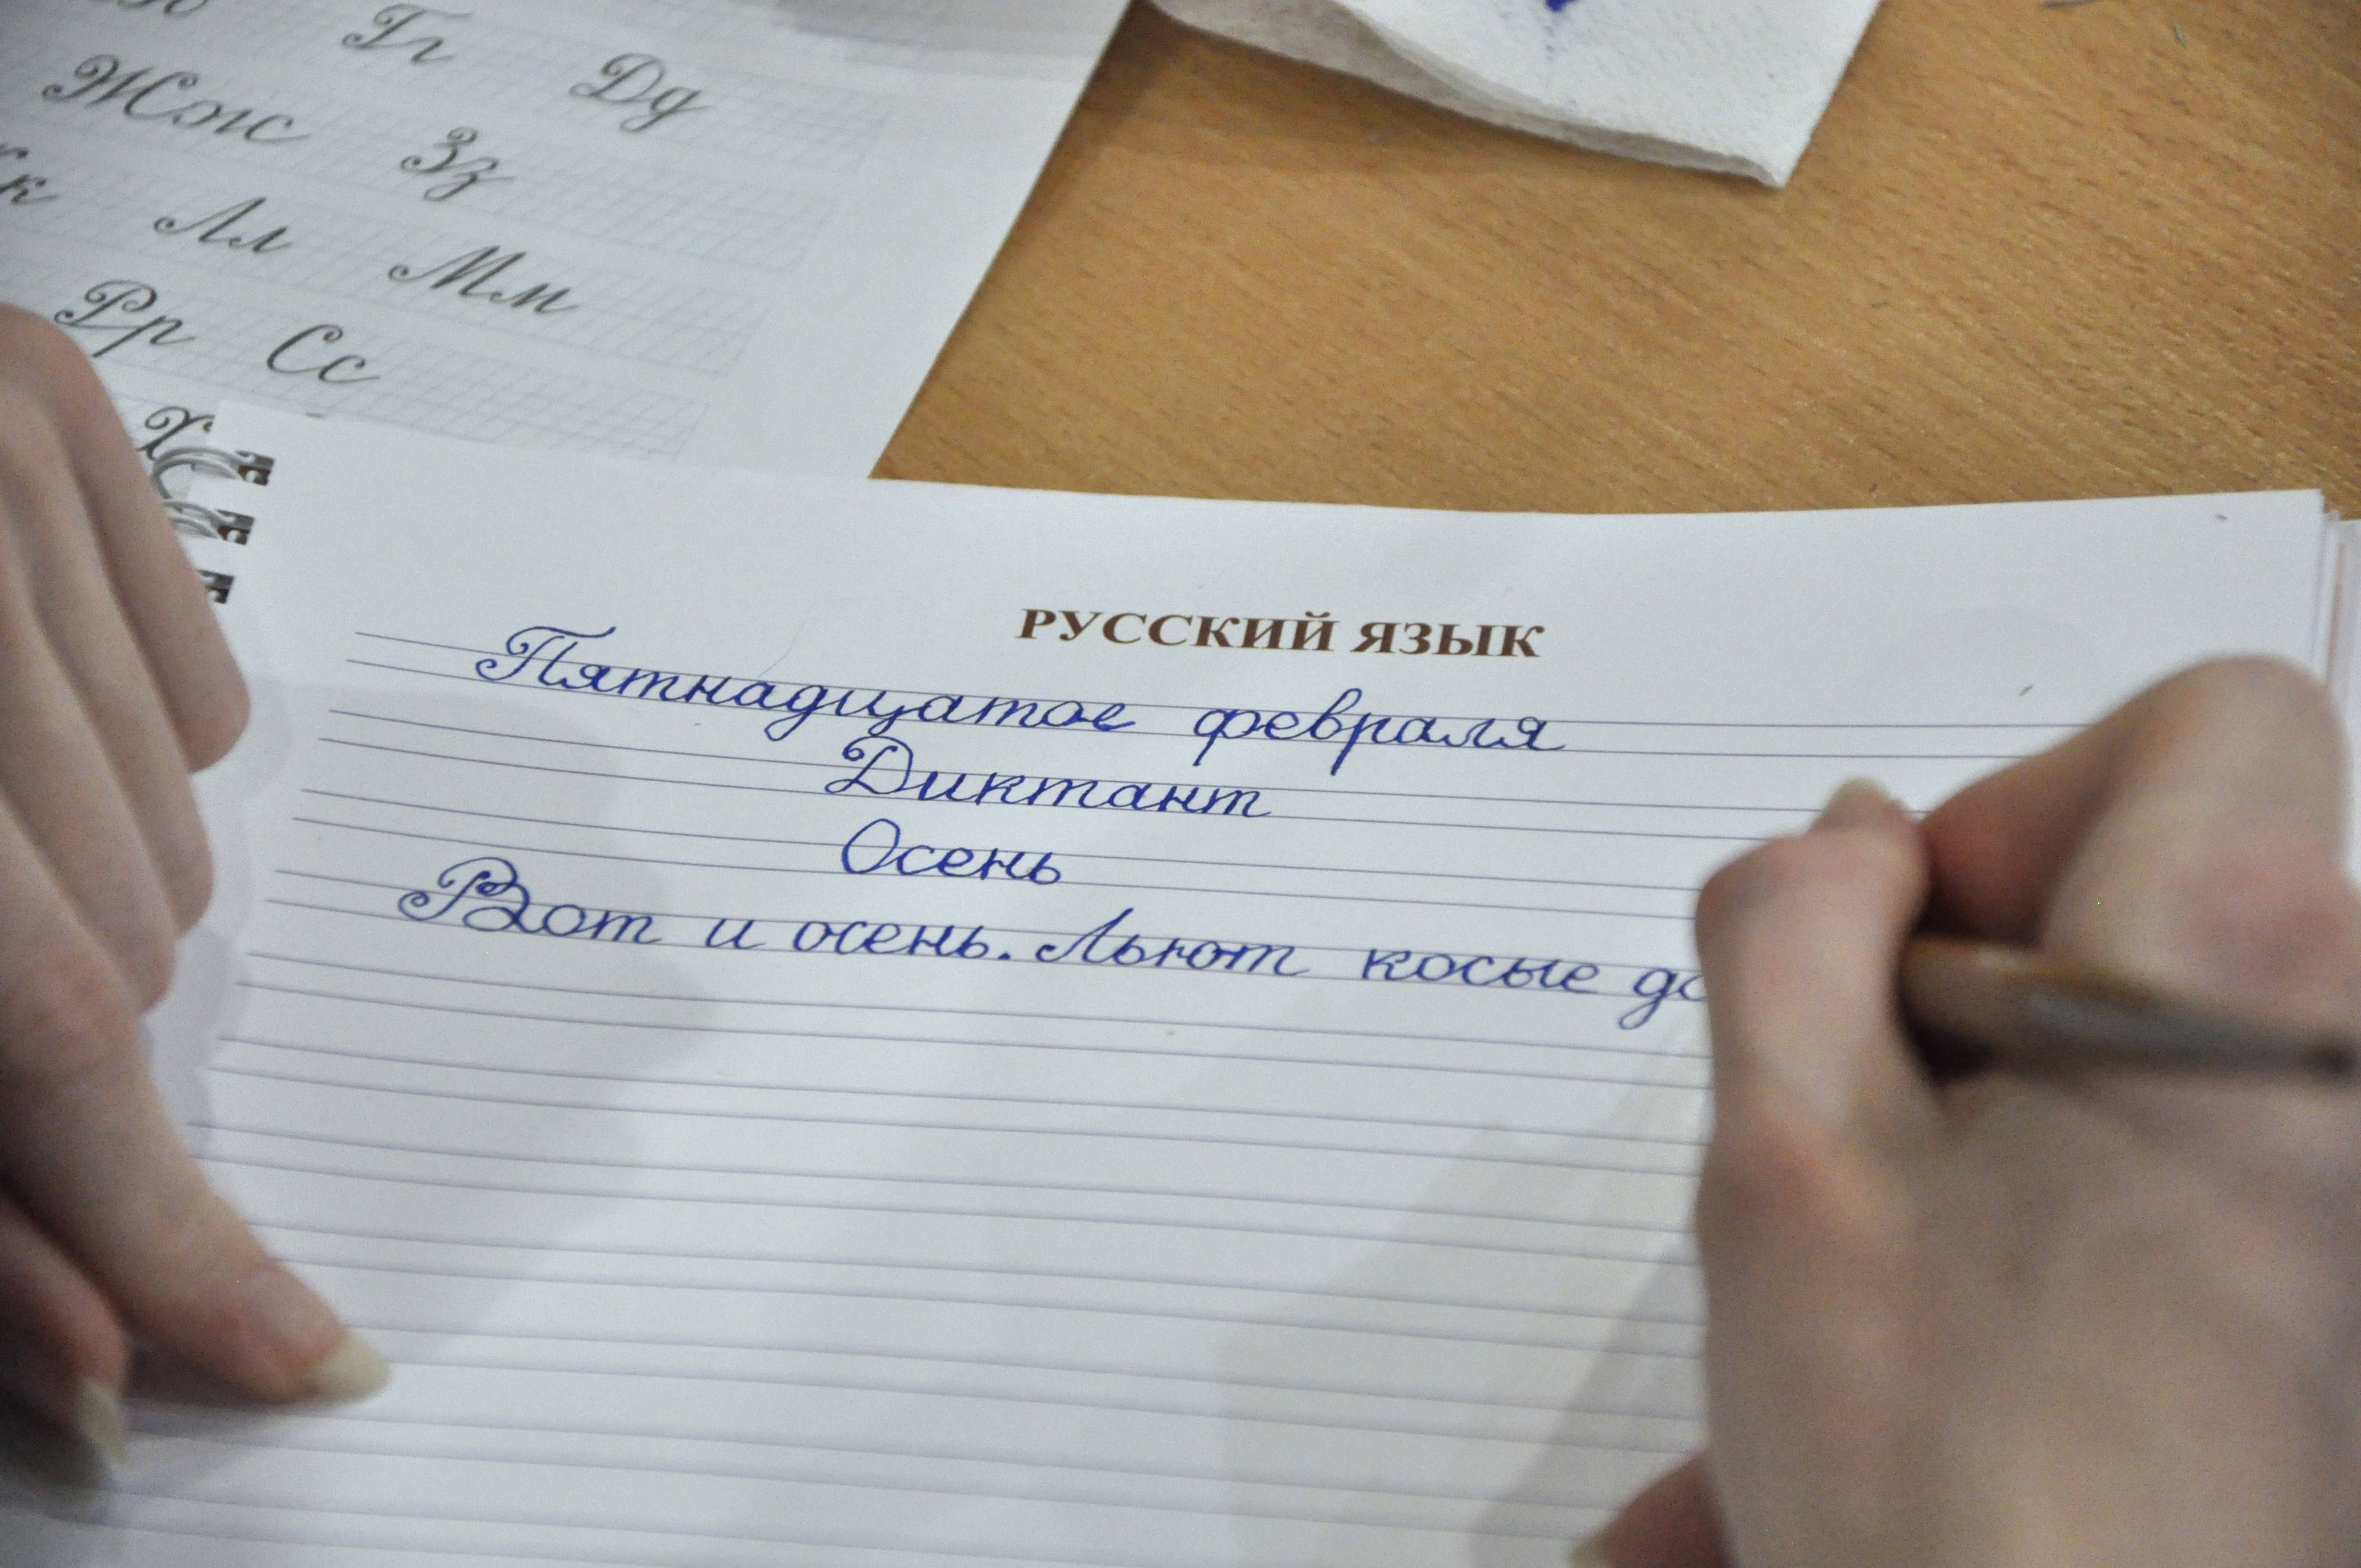 Гг Дд
Жж Зз
Кк Лл Мм
Рр Сс
Х
РУССКИЙ ЯЗЫК
Пятнадцатое февраля
Диктант
Осень
Вот и осень. Льют косые до